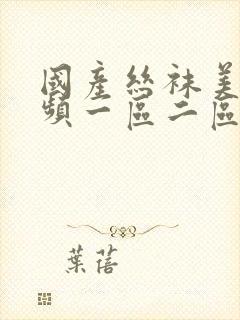 國產絲袜美
頻一區二區
葉蓓